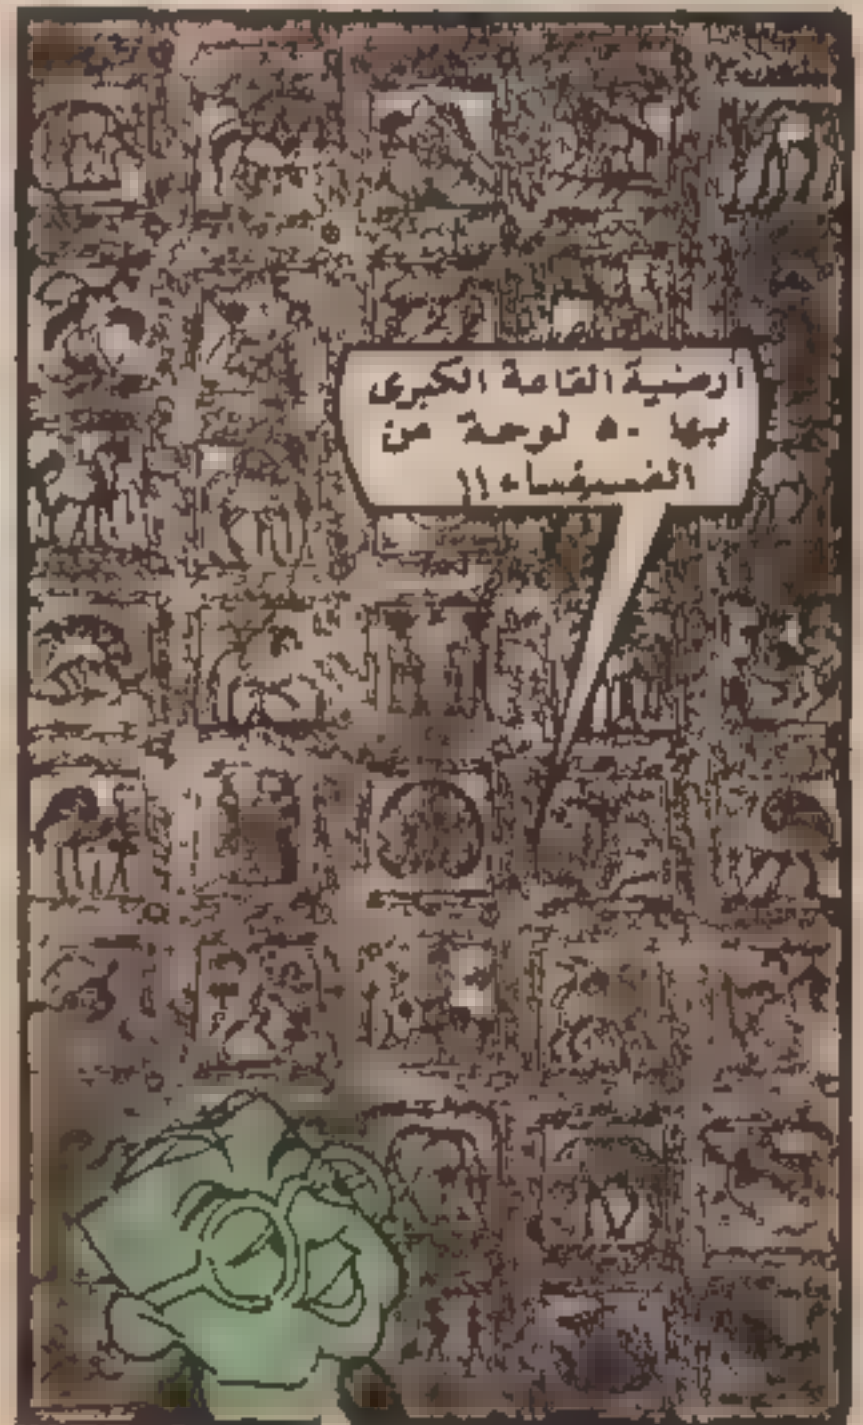 أرضية القاعة الكبرى
بها ٥٠ لوحة من
الفسيفساء !!